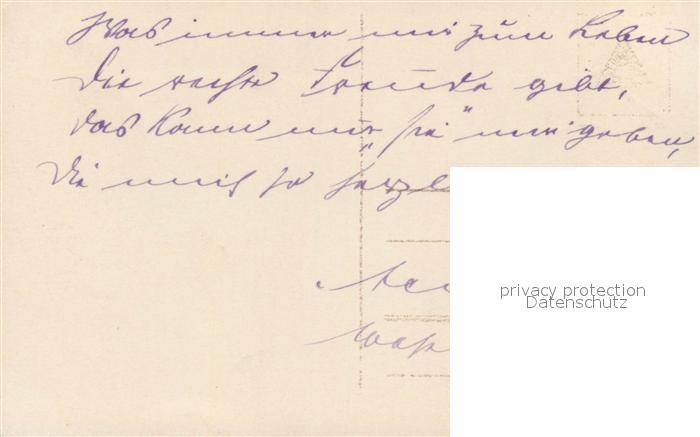 Was immer mir zum Leben
die rechte Freude gibt,
das kann mir „sie“ nur geben,
die mich so
privacy protection
Datenschutz